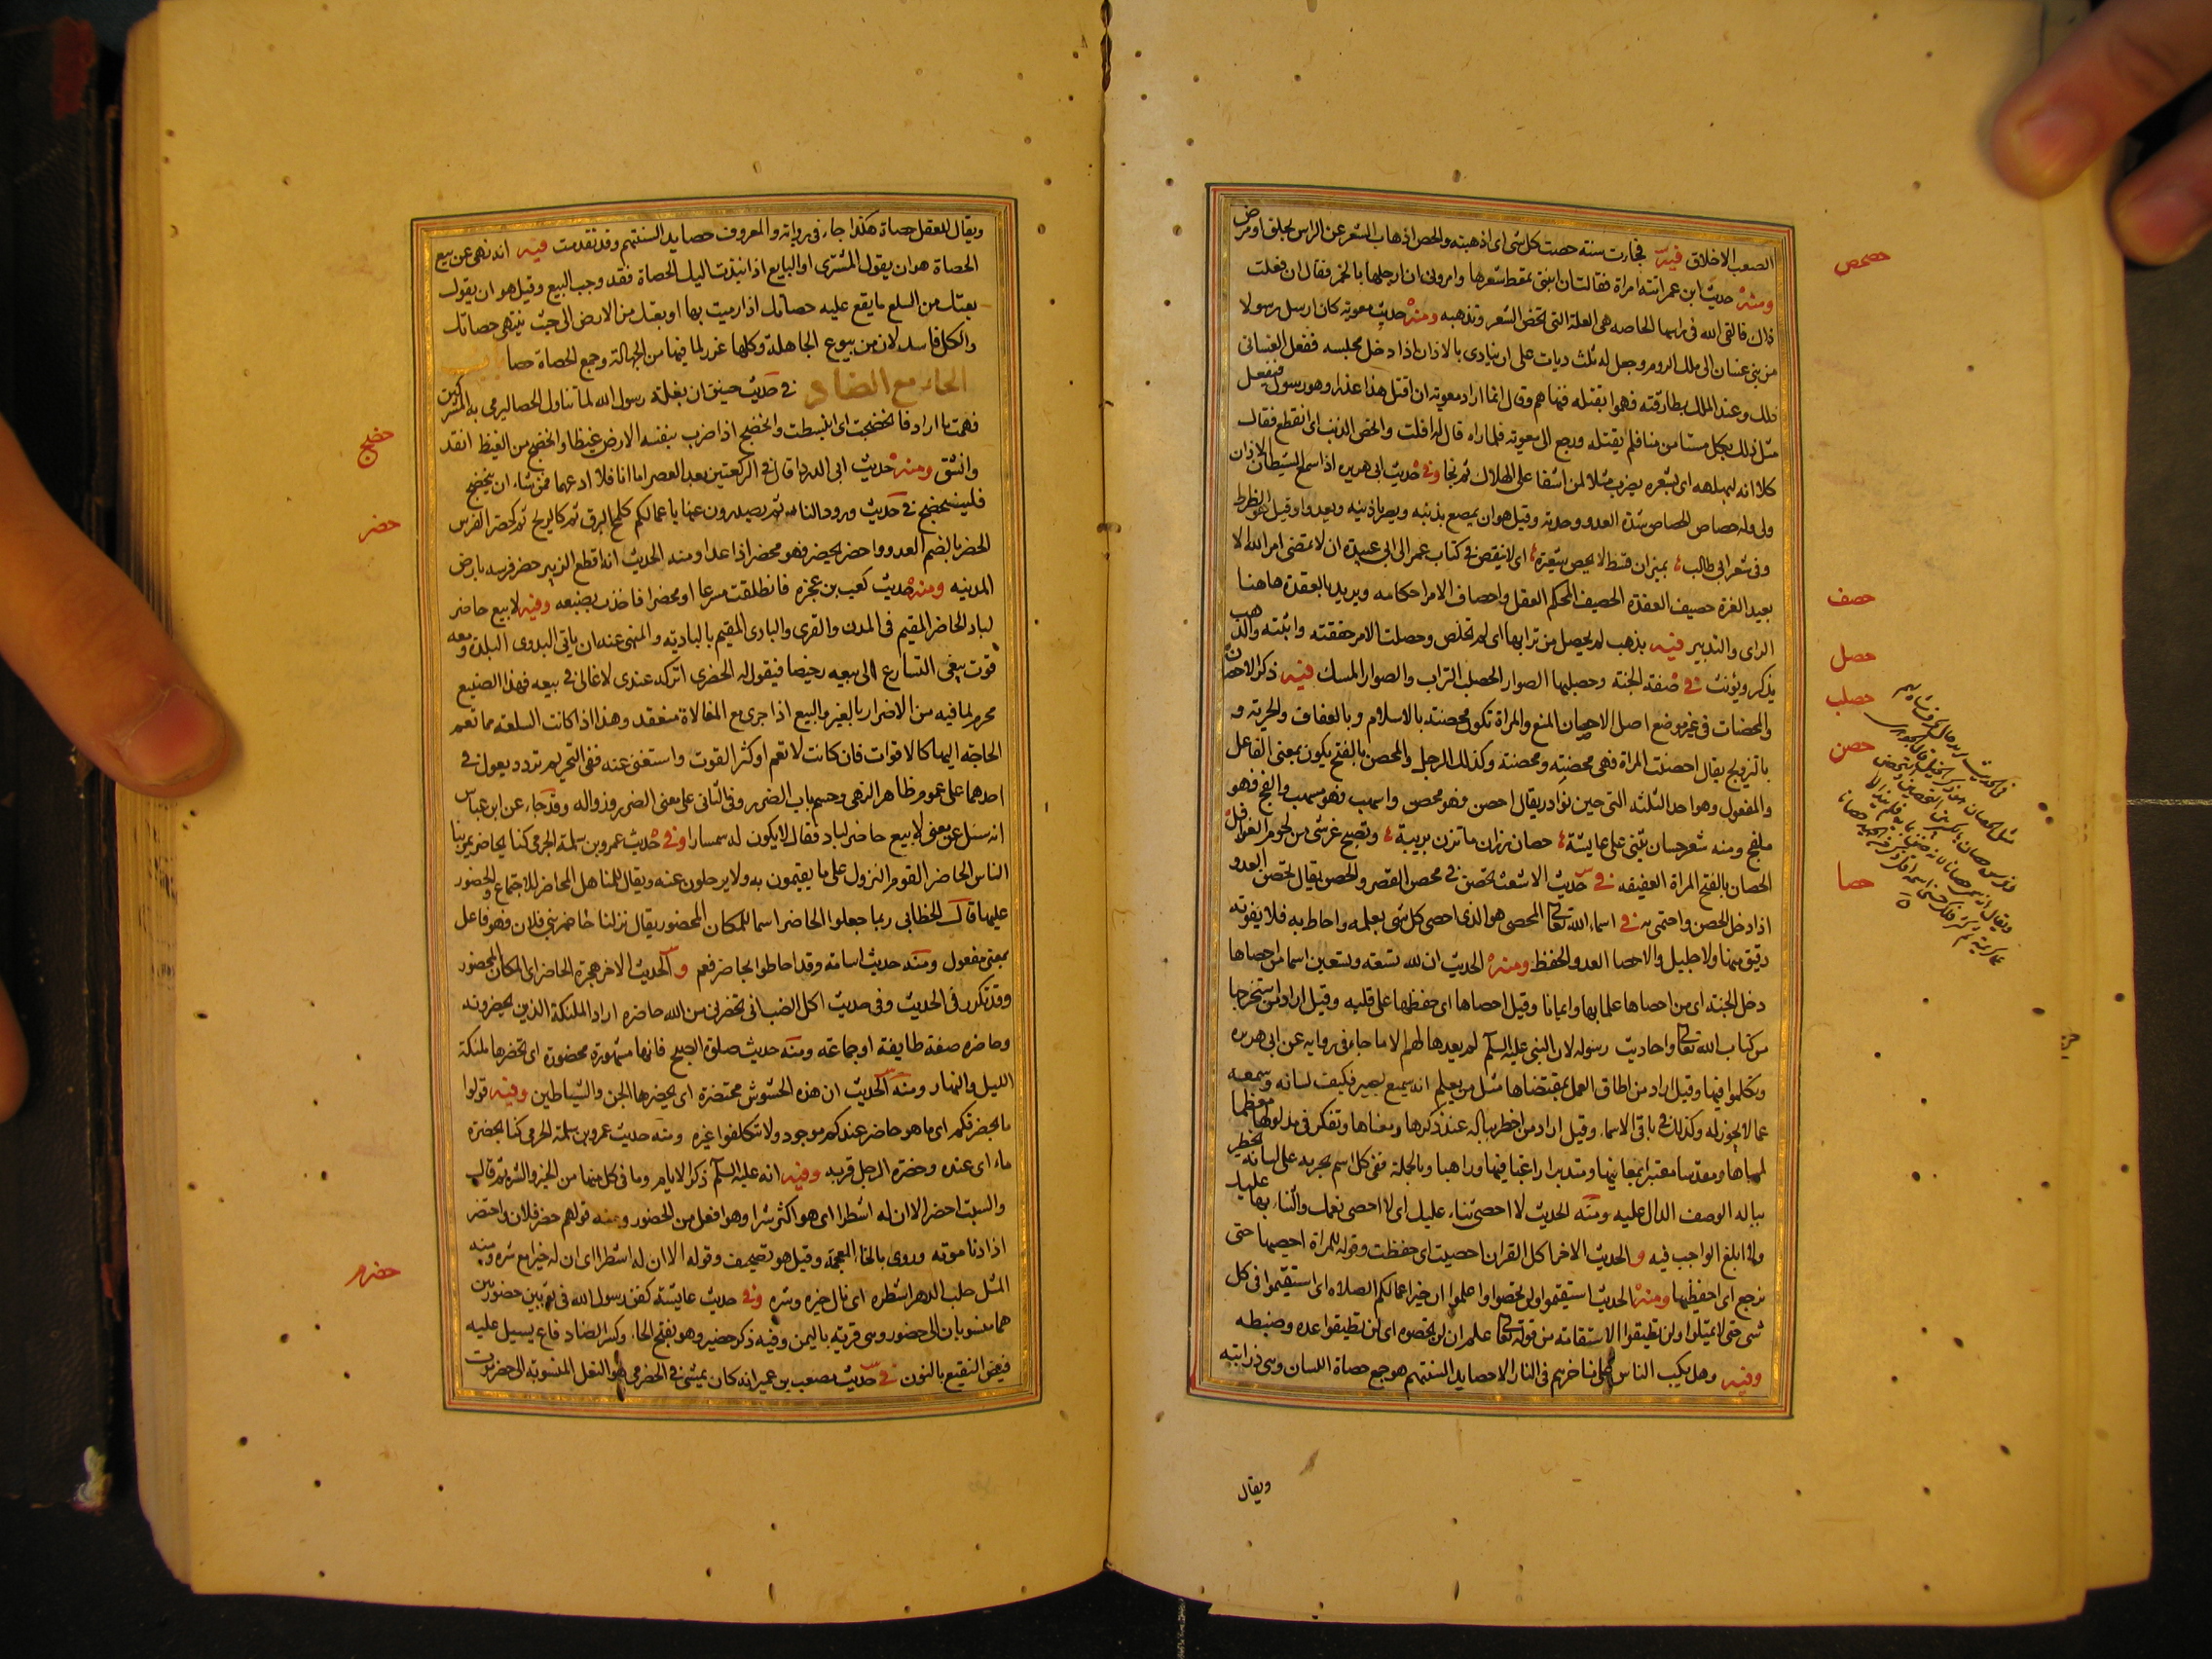 الصعب الاخلاق فيه فجاءت سنة حصت كل شى اى اذهبته والحص اذهاب الشعر عن الراس بحلق او مرض
ومنه حديث ابن عمر اتته امراة فقالت ان ابنتى تمعط شعرها وامرونى ان ارجلها بالخمر فقال ان فعلت
ذاك فالقى الله فى راسها الحاصه هى العلة التى تحص الشعر وتذهبه ومنه حديث معويه كان ارسل رسولا
من بنى غسان الى ملك الروم وجعل له ثلث ديات على ان ينادى بالاذان اذا دخل مجلسه ففعل الغسانى
ذلك وعند الملك بطارقته فهموا بقتله فنهاهم وقال انما اراد معويه ان اقتل هذا غدرا وهو رسول فيفعل
مثل ذلك بكل مستامن منا فلم يقتله ورجع الى معويه فلما راه قال له افلت وانحص الذنب اى انقطع فقال
كلا انه لبهلبه اى بشعره يضرب مثلا لمن اشفا على الهلاك ثم نجا وفى حديث ابى هريره اذا سمع الشيطان الاذان
ولى وله حصاص الحصاص شدة العدو وحدته وقيل هو ان يمصع بذنبه ويصر باذنيه ويعدوا وقيل هو الضرط
وفى شعر ابى طالب بميزان قسط لا يحص شعيرة اى لا ينقص فى كتاب عمر الى ابى عبيدة ان لا يمضى امر الله الا
بعيد الغرة حصيف العقدة الحصيف المحكم العقل واحصاف الامر احكامه ويريد بالعقدة هاهنا
الراى والتدبير فيه بذهب لم يحصل من ترابها اى لم تخلص وحصلت الامر حققته واثبته والذهب
يذكر ويؤنث فى صفة الجنة وحصلبها الصوار الحصلب التراب والصوار المسك فيه ذكر الاحصان
والمحصنات فى غير موضع اصل الاحصان المنع والمراة تكون محصنة بالاسلام وبالعفاف والحرية و
بالتزويج يقال احصنت المراة فهى محصنة ومحصنة وكذلك الرجل والمحصن بالفتح يكون بمعنى الفاعل
والمفعول وهو احد الثلثة التى جين نوادر يقال احصن فهو محصن واسهب فهو مسهب والفج فهو
ملفج ومنه شعر حسان يثنى على عايشة حصان رزان ما تزن بريبة وتصبح غرثى من لحوم الغوافل
الحصان بالفتح المراة العفيفه فى حديث الاشعث تحصن فى محصن القصر والحصن يقال تحصن العدو
اذا دخل الحصن واحتمى به فى اسماء الله تعالى المحصى هو الذى احصى كل شى بعلمه واحاط به فلا يفوته
دقيق منها ولا جليل والاحصا العد والحفظ ومنه الحديث ان لله تسعة وتسعين اسما من احصاها
دخل الجنة اى من احصاها علما بها وايمانا وقيل احصاها اى حفظها على قلبه وقيل اراد من استخرجها
من كتاب الله تعالى واحاديث رسوله لان النبى عليه السلم لم يعدها لهم الا ما جاء فى روايه عن ابى هريره
وتكلموا فيها وقيل اراد من اطاق العمل بمقتضاها مثل من يعلم انه سميع بصير فيكيف لسانه وسمعه
عما لا يجوز له وكذلك فى باقى الاسماء وقيل اراد من اخطر بباله عند ذكرها معناها وتفكر فى مدلولها معظما
لمسماها ومقدسا معتبرا بمعانيها ومتدبرا راغبا فيها وراهبا وبالجملة ففى كل اسم يجريه على لسانه يخطر
بباله الوصف الدال عليه ومنه الحديث لا احصى ثناء عليك اى لا احصى نعمك والثناء بها عليك
ولا ابلغ الواجب فيه و الحديث الاخر اكل القران احصيت اى حفظت وقوله للمراة احصيها حتى
نرجع اى احفظيها ومنه الحديث استقيموا ولن تحصوا واعلموا ان خير اعمالكم الصلاة اى استقيموا فى كل
شى حتى لا تميلوا ولن تطيقوا الاستقامة من قوله تعالى علم ان لن تحصوه اى لن تطيقوا عده وضبطه
وفيه وهل يكب الناس على مناخرهم فى النار الا حصايد السنتهم هو جمع حصاة اللسان وهى ذرابته
ويقال
حصص
حصف
حصل
حصلب
حصن
حصا
ويقال للعقل حصاة هكذا جاء فى رواية والمعروف حصايد السنتهم وقد تقدمت فيه انه نهى عن بيع
الحصاة هو ان يقول المشترى او البايع اذا نبذت اليك الحصاة فقد وجب البيع وقيل هو ان يقول
بعتك من السلع ما يقع عليه حصاتك اذا رميت بها او بعتك من الارض الى حيث ينتهى حصاتك
والكل فاسد لان من بيوع الجاهلية وكلها غرر لما فيها من الجهالة وجمع الحصاة حصا
الحاء مع الضاد فى حديث حنين ان بغلة رسول الله لما تناول الحصا ليرمى به المشركين
فهمت ما اراد فانحضجت اى انبسطت وانحضج اذا ضرب بنفسه الارض غيظا وانحضج من الغيظ انقد
وانشق ومنه حديث ابى الدرداء قال فى الركعتين بعد العصر اما انا فلا ادعهما فمن شاء ان ينحضج
فلينحضج فى حديث ورود النار ثم يصدرون عنها باعمالكم كلمح البرق ثم كالريح ثم كحضر الفرس
الحضر بالضم العدو واحضر يحضر فهو محضر اذا عدا ومنه الحديث انه اقطع الزبير حضر فرسه بارض
المدينه ومنه حديث كعب بن عجزه فانطلقت مسرعا او محضرا فاخذت بضبعه وفيه لا يبيع حاضر
لباد الحاضر المقيم فى المدن والقرى والبادى المقيم بالبادية والمنهى عنه ان ياتى البدوى البلدة ومعه
قوت يبغى التسارع الى بيعه رخيصا فيقول له الحضرى اتركه عندى لاغالى فى بيعه فهذا الصنيع
محرم لما فيه من الاضرار بالغير والبيع اذا جرى مع المغالاة منعقد وهذا اذا كانت السلعة مما تعم
الحاجة اليها كالاقوات فان كانت لا تعم او كثر القوت واستغنى عنه ففى التحريم تردد يعول فى
احدهما على عموم ظاهر النهى وحسم باب الضرر وفى الثانى على معنى الضرر وزواله وقد جاء عن ابن عباس
انه سئل عن معنى لا يبيع حاضر لباد فقال لا يكون له سمسارا وفى حديث عمرو بن سلمة الجرمى كنا بحاضر يمر بنا
الناس الحاضر القوم النزول على ما يقيمون به ولا يرحلون عنه ويقال للمناهل المحاضر للاجتماع والحضور
عليها قال الخطابى ربما جعلوا الحاضر اسما للمكان المحضور يقال نزلنا حاضر بنى فلان فهو فاعل
بمعنى مفعول ومنه حديث اسامه وقد احاطوا بحاضر فعم و الحديث الاخر هجرة الحاضر اى المكان المحضور
وقد تكرر فى الحديث وفى حديث اكل الضب انى تحضرنى من الله حاضره اراد الملئكة الذين يحضرونه
وحاضره صفة طايفة او جماعة ومنه حديث صلوة الصبح فانها مشهودة محضورة اى تحضرها ملئكة
الليل والنهار ومنه الحديث ان هذه الحشوش محتضرة اى يحضرها الجن والشياطين وفيه قولوا
ما بحضرتكم اى ما هو حاضر عندكم موجود ولا تتكلفوا غيره ومنه حديث عمرو بن سلمة الجرمى كنا بحضرة
ماء اى عنده وحضرة الرجل قربه وفيه انه عليه السلم ذكر الايام وما فى كل منها من الخير والشر ثم قال
والسبت احضر الا ان له اشطرا اى هو اكثر شرا وهو افعل من الحضور ومنه قولهم حضر فلان واحتضر
اذا دنا موته وروى بالخاء المعجمة وقيل هو تصحيف وقوله الا ان له اشطرا اى ان له خيرا مع شره ومنه
المثل حلب الدهر اشطره اى نال خيره وشره وفى حديث عايشة كفن رسول الله فى ثوبين حضوريين
هما منسوبان الى حضور وهى قرية باليمن وفيه ذكر حضير وهو بفتح الحاء وكسر الضاد قاع يسيل عليه
فيض النقيع بالنون فى حديث مصعب بن عمير انه كان يمشى فى الحضرمى هو النعل المنسوبة الى حضرموت
حضج
حضر
حضرم